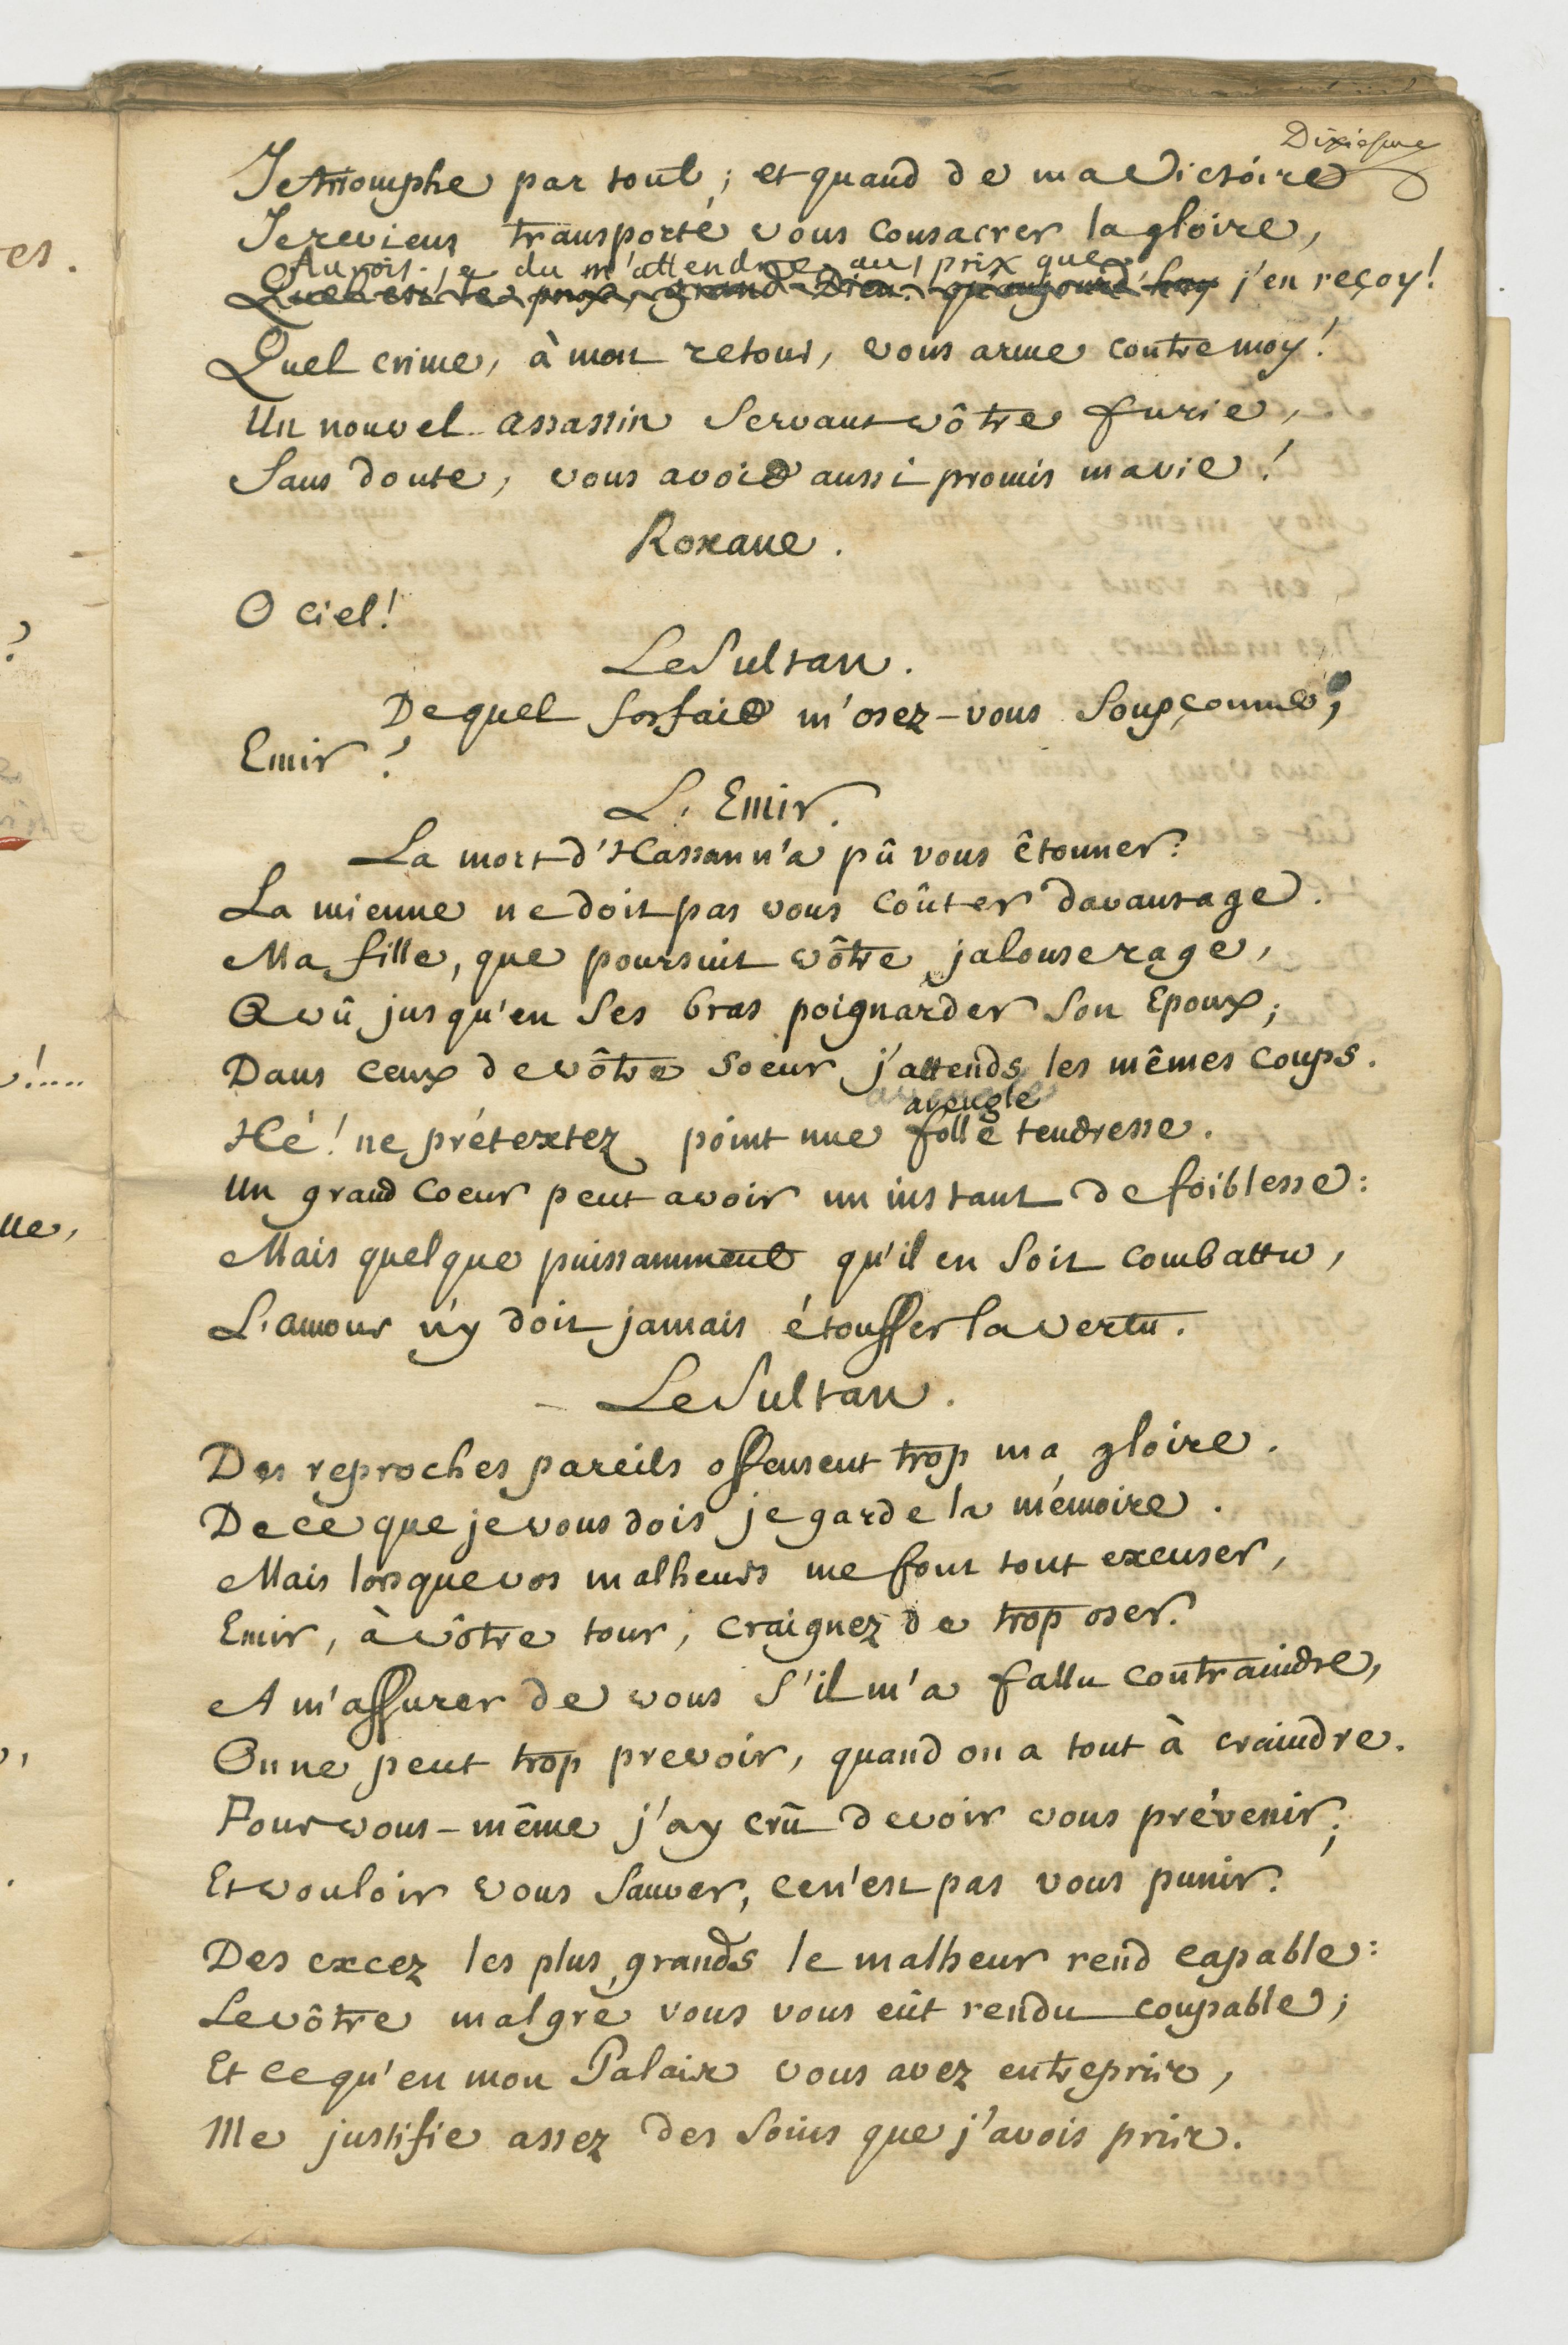 Dixiesme
Je triomphe par tout ; et quand de ma victoire
Je reviens transporté vous consacrer la gloire,
Aurois-je du m'attendre au prix que
Quel est le prix, grand Dieu! qu'aujourd'huy j'en reçoy!
Quel crime, à mon retour, vous arme contre moy!
Un nouvel assassin servant vôtre furie,
Sans doute, vous avoit aussi promis ma vie!
Roxane.
O ciel!
Le Sultan.
De quel forfait m'osez-vous soupçonner,
Emir?
L'Emir.
La mort d'Hassan n'a pû vous êtonner:
La mienne ne doit pas vous coûter davantage.
Ma fille, que poursuit vôtre jalouse rage,
A vû jusqu'en ses bras poignarder son Epoux;
Dans ceux de vôtre soeur j'attends les mêmes coups.
aveugle
Hé! ne prétextez point une folle tendresse.
Un grand coeur peut avoir un instant de foiblesse:
Mais quelque puissamment qu'il en soit combattu,
L'amour n'y doit jamais étouffer la vertu.
Le Sultan.
Des reproches pareils offensent trop ma gloire.
De ce que je vous dois je garde la mémoire.
Mais lorsque vos malheurs me font tout excuser,
Emir, à vôtre tour, craignez de trop oser.
A m'assurer de vous s'il m'a fallu contraindre,
On ne peut trop prevoir, quand on a tout à craindre.
Pour vous-même j'ay crû devoir vous prévenir;
Et vouloir vous sauver, ce n'est pas vous punir.
Des excez les plus grands le malheur rend capable:
Le vôtre malgré vous vous eût rendu coupable;
Et ce qu'en mon Palais vous avez entrepris,
Me justifie assez des soins que j'avois pris.